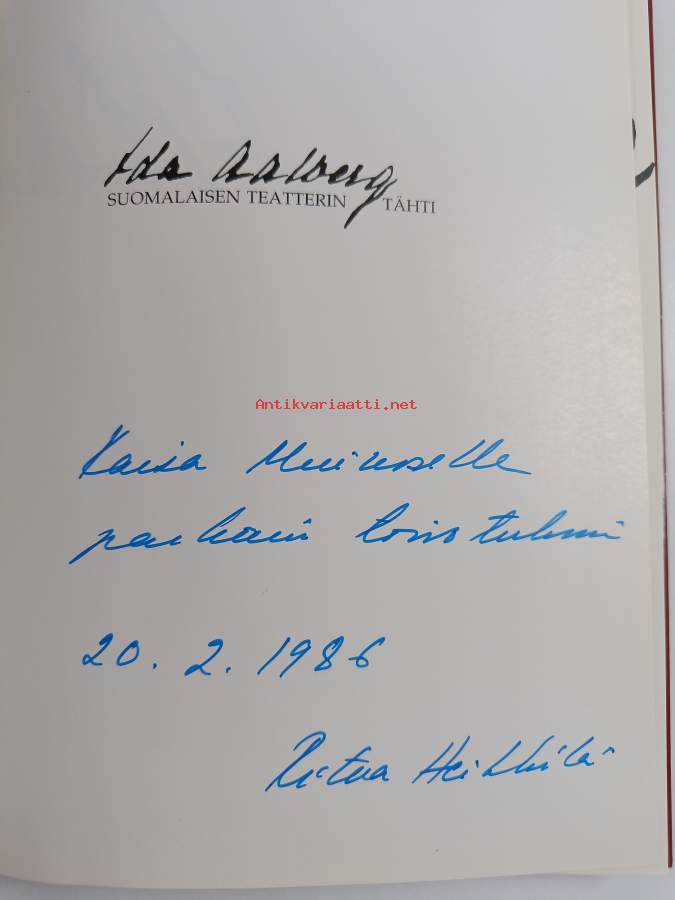 Ida Aalberg
SUOMALAISEN TEATTERIN TÄHTI
Antikvariaatti.net
Kaisa
parhain toivotuksin
20. 2. 1986
Ritva Heikkilä